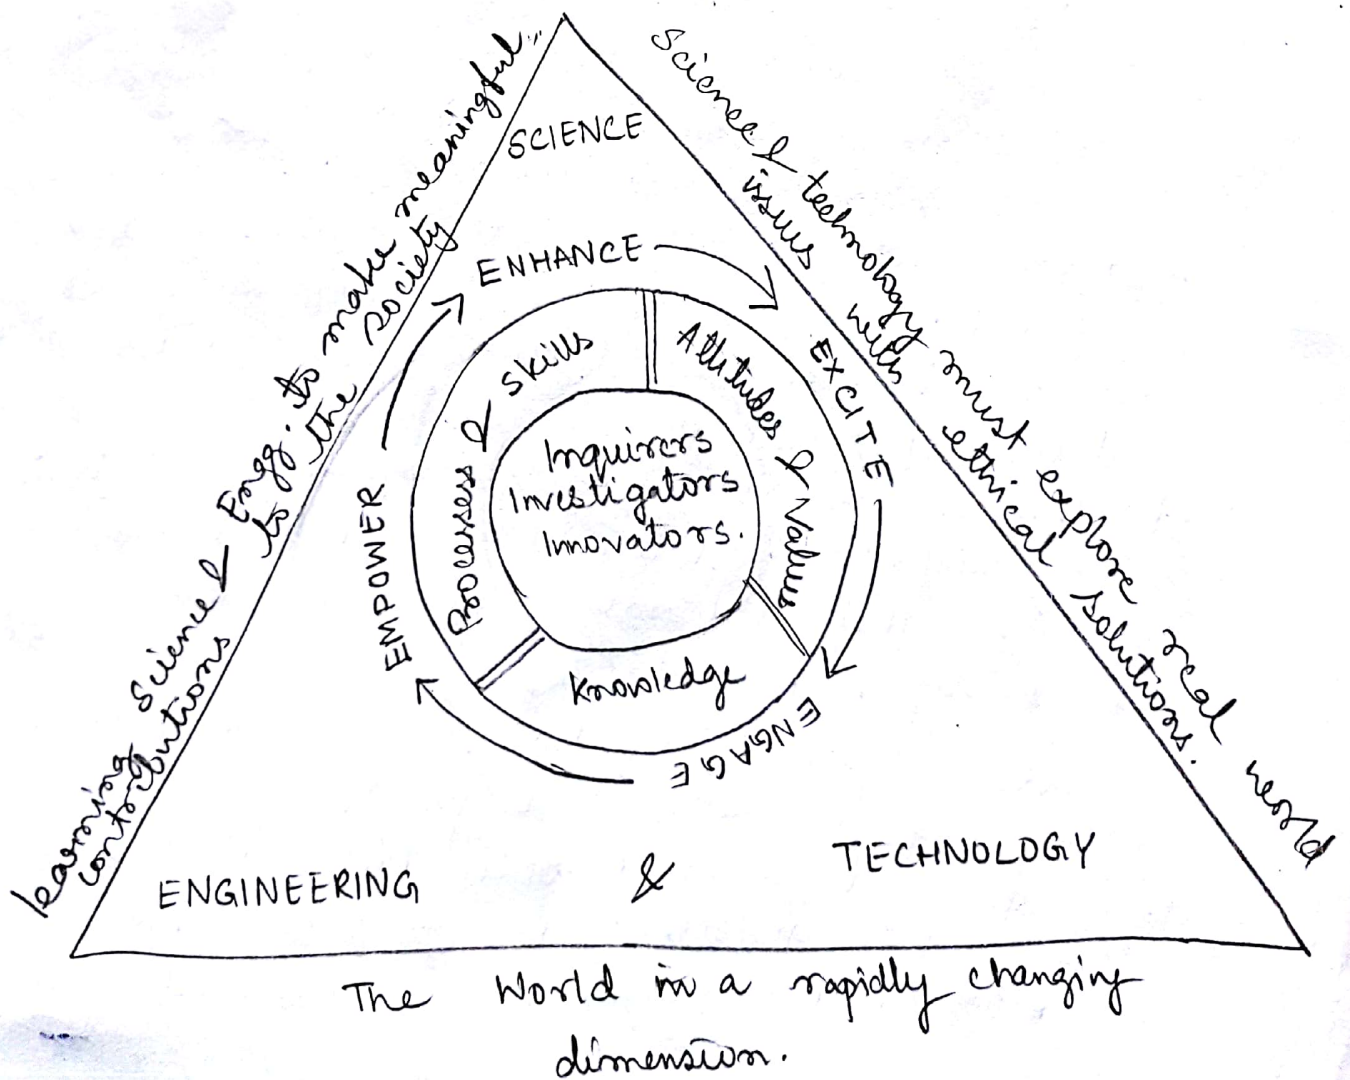 learning science & Engg. to make meaningful
contributions to the society
Science & technology must explore real world
issues with ethical solutions.
SCIENCE
ENHANCE
EXCITE
ENGAGE
EMPOWER
Processes & skills
Attitudes & Values
Knowledge
Inquirers
Investigators
Innovators.
ENGINEERING & TECHNOLOGY
The World in a rapidly changing
dimension.